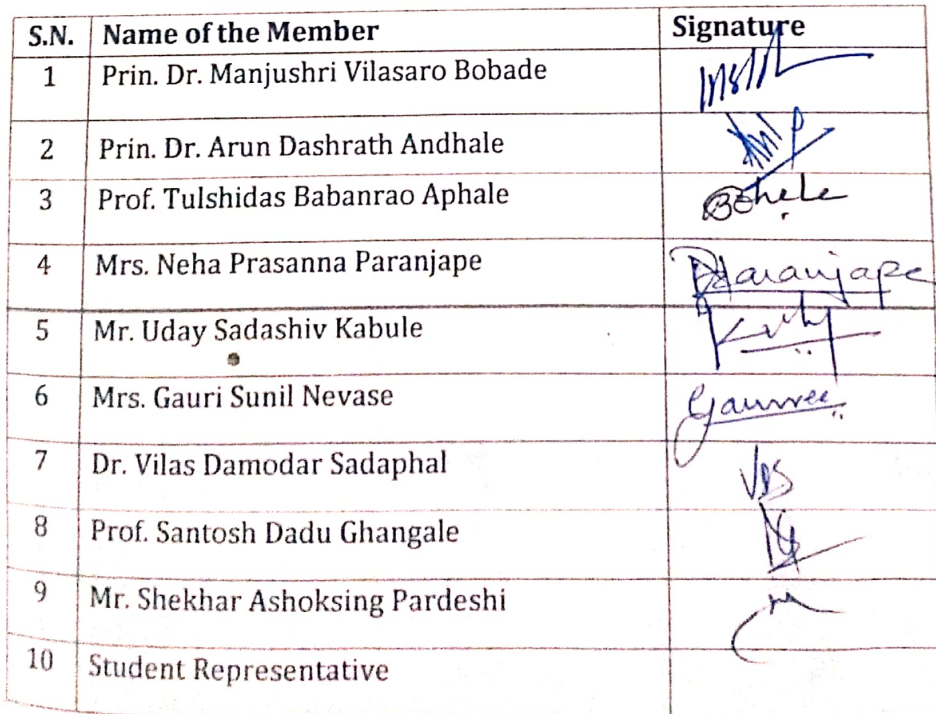 S.N. Name of the Member Signature
1 Prin. Dr. Manjushri Vilasaro Bobade
2 Prin. Dr. Arun Dashrath Andhale
3 Prof. Tulshidas Babanrao Aphale
4 Mrs. Neha Prasanna Paranjape Paranjape
5 Mr. Uday Sadashiv Kabule
6 Mrs. Gauri Sunil Nevase
7 Dr. Vilas Damodar Sadaphal VDS
8 Prof. Santosh Dadu Ghangale
9 Mr. Shekhar Ashoksing Pardeshi
10 Student Representative